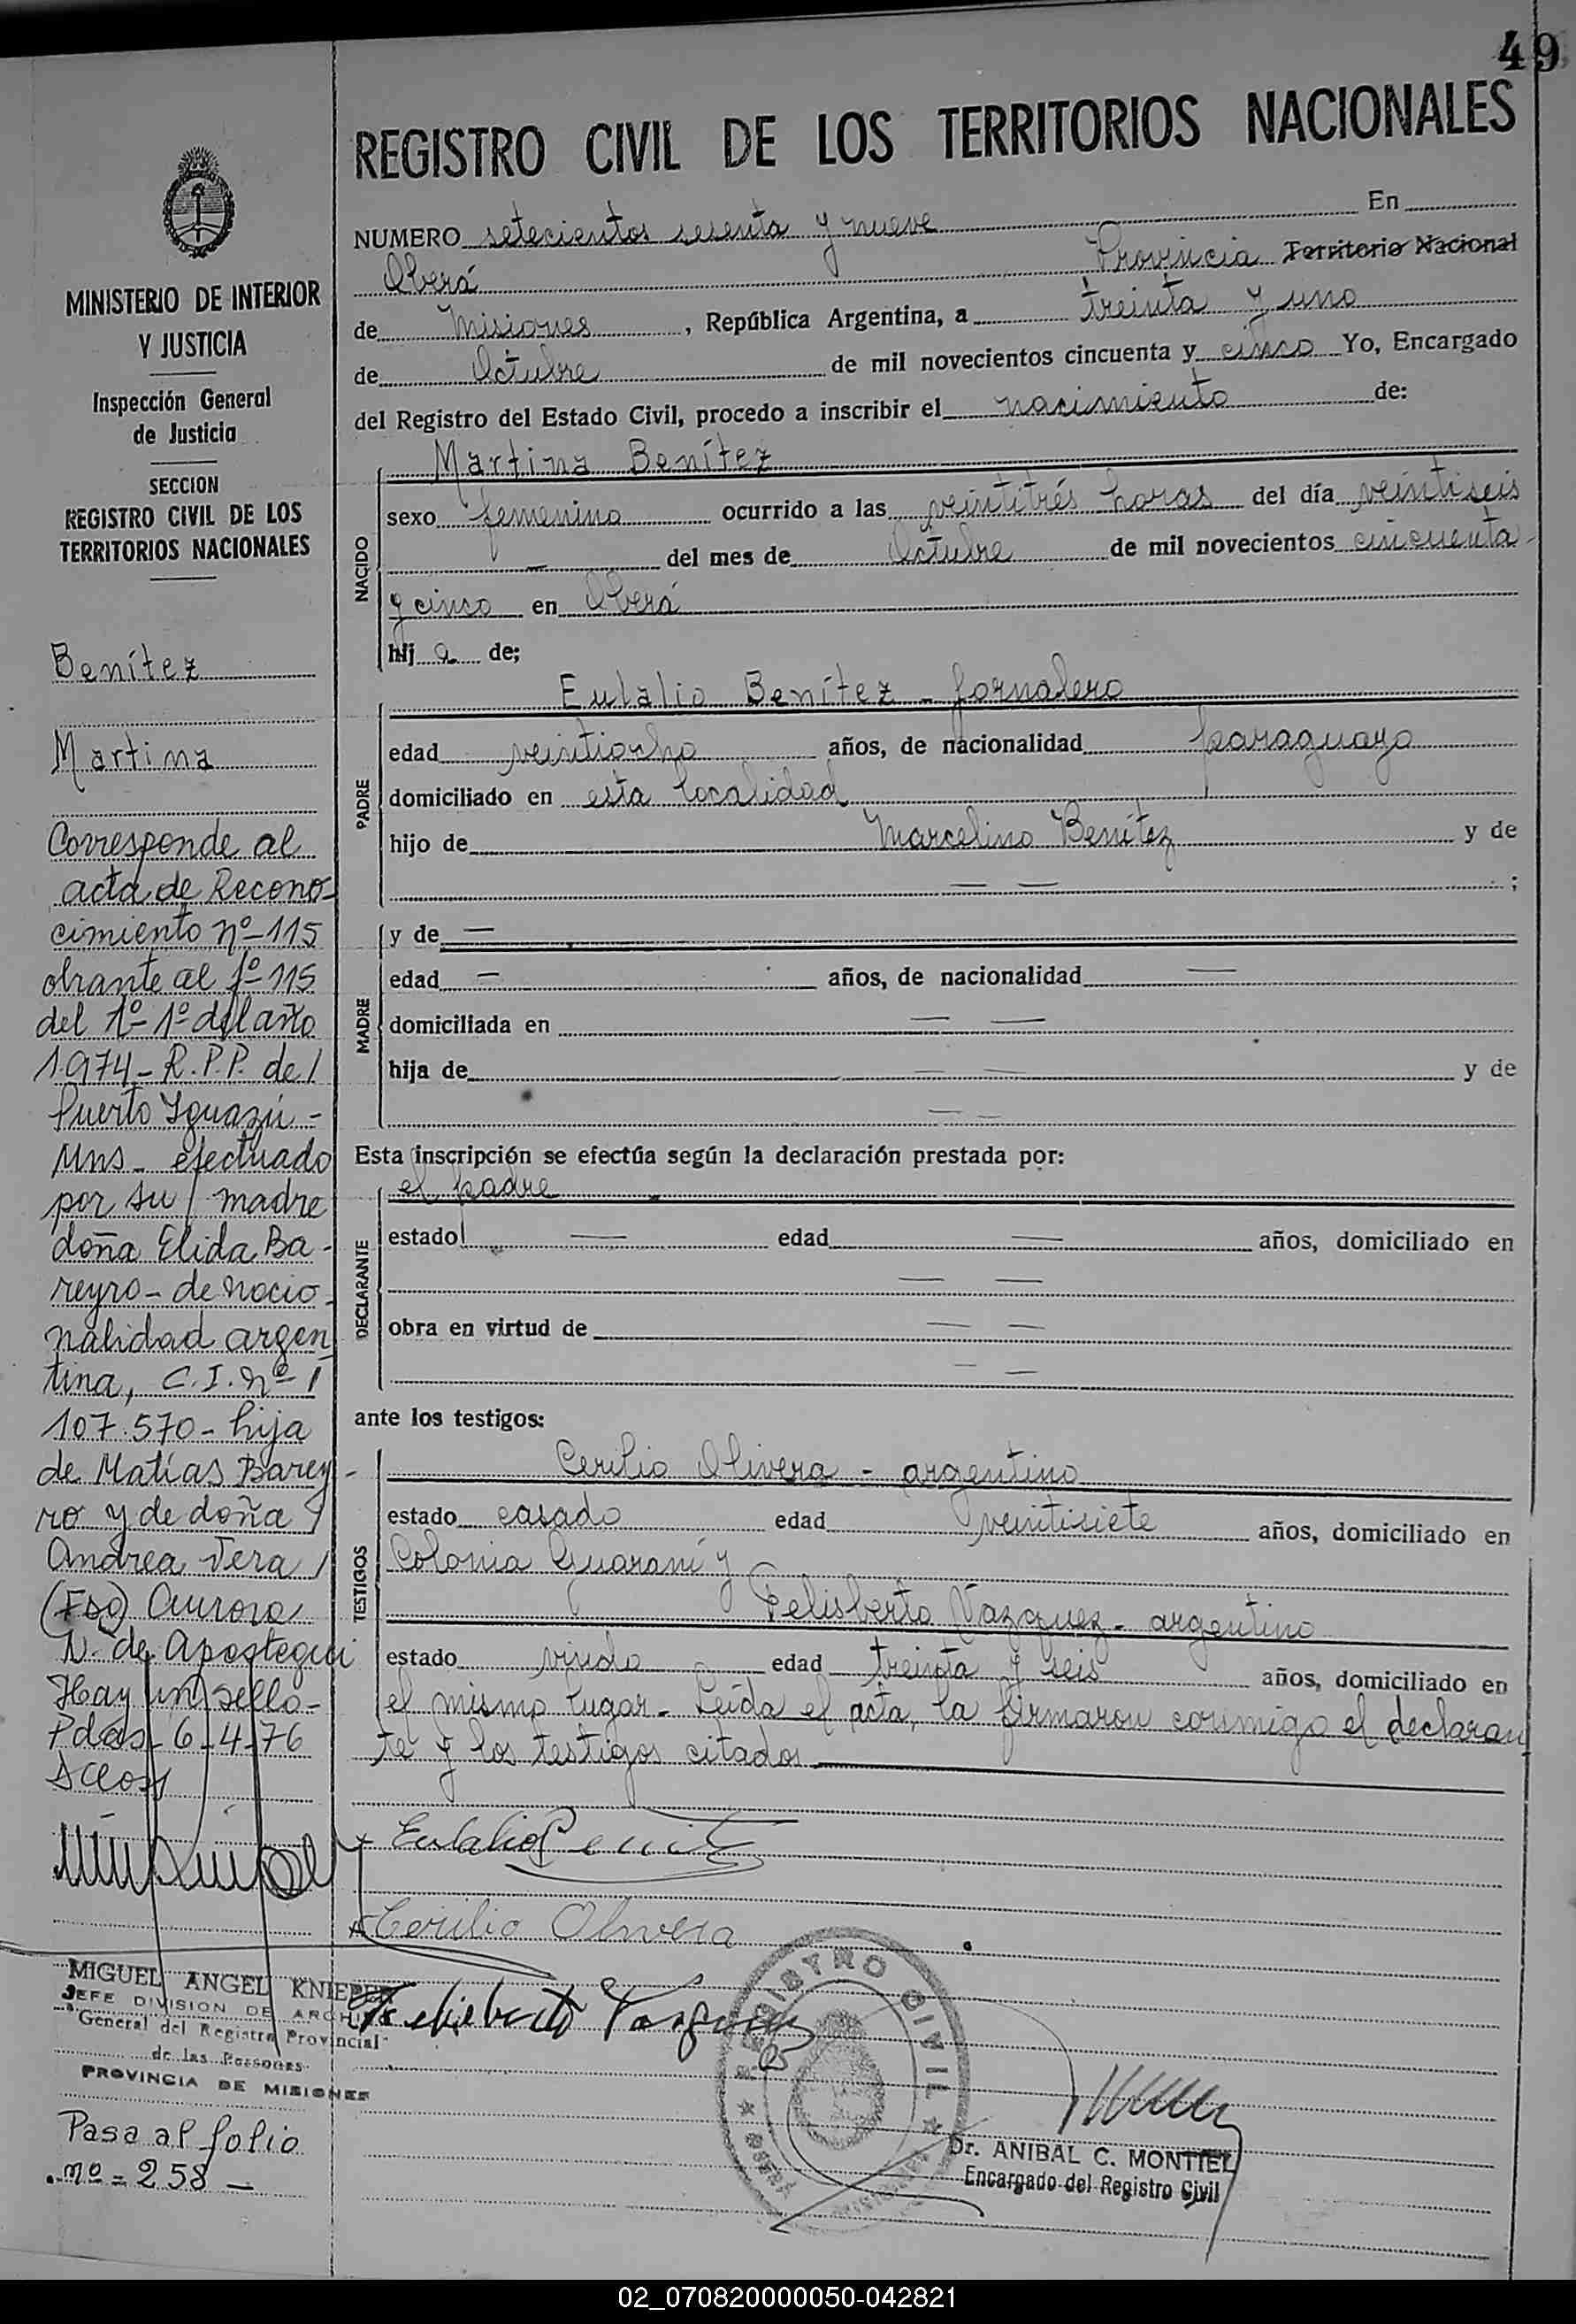 49
REGISTRO CIVIL DE LOS TERRITORIOS NACIONALES
NUMERO setecientos sesenta y nueve En
Oberá Provincia Territorio Nacional
de Misiones, República Argentina, a treinta y uno
de Octubre de mil novecientos cincuenta y cinco Yo, Encargado
del Registro del Estado Civil, procedo a inscribir el nacimiento de:
NACIDO
Martina Benítez
sexo femenino ocurrido a las veintitrés horas del día veintiseis
— del mes de Octubre de mil novecientos cincuenta
y cinco en Oberá
hij a de;
PADRE
Eulalio Benítez - jornalero
edad veintiocho años, de nacionalidad paraguayo
domiciliado en esta localidad
hijo de Marcelino Benítez y de
— — ;
MADRE
y de —
edad — años, de nacionalidad —
domiciliada en — —
hija de — — y de
— —
Esta inscripción se efectúa según la declaración prestada por:
DECLARANTE
el padre
estado — edad — años, domiciliado en
— —
obra en virtud de — —
— —
ante los testigos:
TESTIGOS
Cerilio Olivera - argentino
estado casado edad veintisiete años, domiciliado en
Colonia Guaraní y
Felisberto Vazquez - argentino
estado viudo edad treinta y seis años, domiciliado en
el mismo lugar - Leída el acta, la firmaron conmigo el declaran
te y los testigos citados
Eulalio Benitez
Cerilio Olivera
Felisberto Vazquez
REGISTRO CIVIL
Dr. ANIBAL C. MONTIEL
Encargado del Registro Civil
MINISTERIO DE INTERIOR
Y JUSTICIA
Inspección General
de Justicia
SECCION
REGISTRO CIVIL DE LOS
TERRITORIOS NACIONALES
Benítez
Martina
Corresponde al
acta de Recono-
cimiento nº-115
obrante al fº 115
del Tº- 1º del año
1974 - R.P.P. de /
Puerto Iguazú -
Mns - efectuado
por su / madre
doña Elida Ba-
reyro - de nacio-
nalidad argen
tina, C.I. Nº /
107.570 - hija
de Matías Barey-
ro y de doña /
Andrea Vera /
(Fdo) Aurora
N. de Apostegui
Hay un sello -
Pdas - 6-4-76
MIGUEL ANGEL KNIEPER
JEFE DIVISION DE ARCHIVO
General del Registro Provincial
de las Personas
PROVINCIA DE MISIONES
Pasa al folio
nº = 258 —
02_070820000050-042821